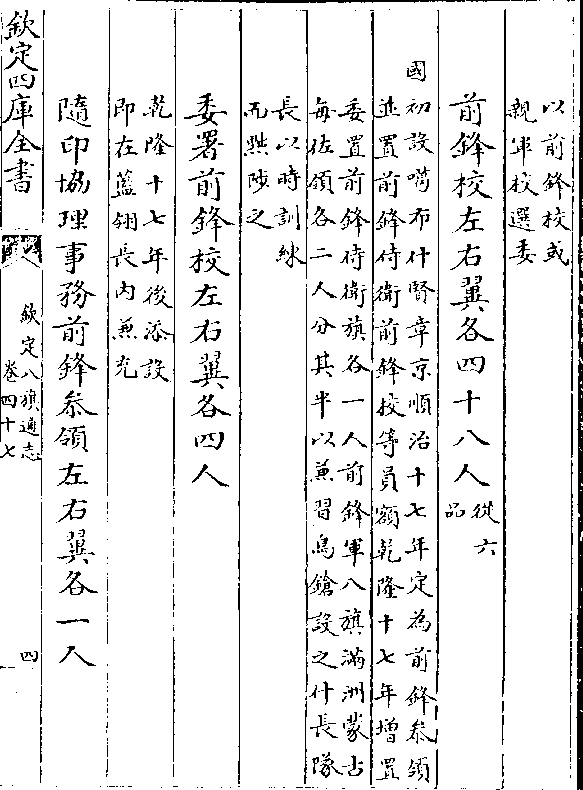 以前鋒校或
親軍校選委
前鋒校左右翼各四十八人 從六
品
國初設噶布什賢章京順治十七年定為前鋒叅領
並置前鋒侍衛前鋒校等員額乾隆十七年增置
委置前鋒侍衛旗各一人前鋒軍八旗滿洲蒙古
每佐領各二人分其半以兼習鳥鎗設之什長隊
長以時訓練
而黜陟之
委署前鋒校左右翼各四人
乾隆十七年後添設
即在藍翎長內兼充
隨印協理事務前鋒叅領左右翼各一人
欽定四庫全書
欽定八旗通志
卷四十七
四